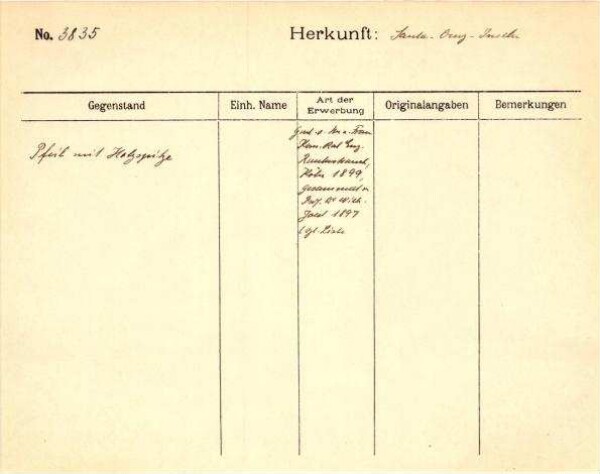 No. 3835
Herkunft: Santa-Cruz-Inseln
Gegenstand
Einh. Name
Art der Erwerbung
Originalangaben
Bemerkungen
Pfeil mit Holzspitze
Gesch. v. Frau
Rat Eug.
1899,
gesammelt v.
Prof. Dr Wilh.
Joest 1897
vgl. Liste